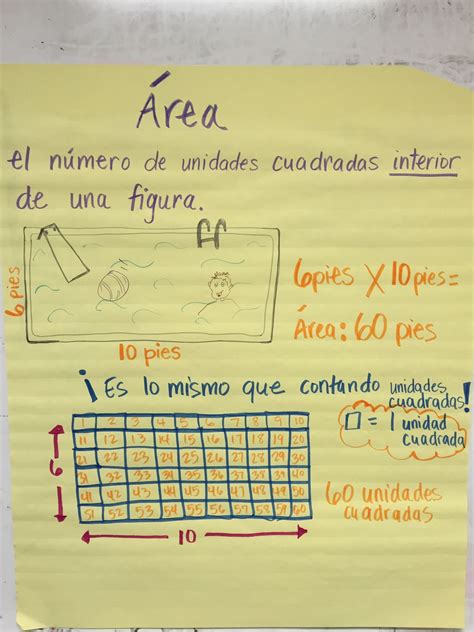 Área
el número de unidades cuadradas interior
de una figura.
6 pies
10 pies
6pies X 10 pies=
Área: 60 pies
¡Es lo mismo que contando unidades cuadradas!
= 1 unidad
cuadrada
6
1 2 3 4 5 6 7 8 9 10
11 12 13 14 15 16 17 18 19 20
21 22 23 24 25 26 27 28 29 30
31 32 33 34 35 36 37 38 39 40
41 42 43 44 45 46 47 48 49 50
51 52 53 54 55 56 57 58 59 60
10
60 unidades
cuadradas